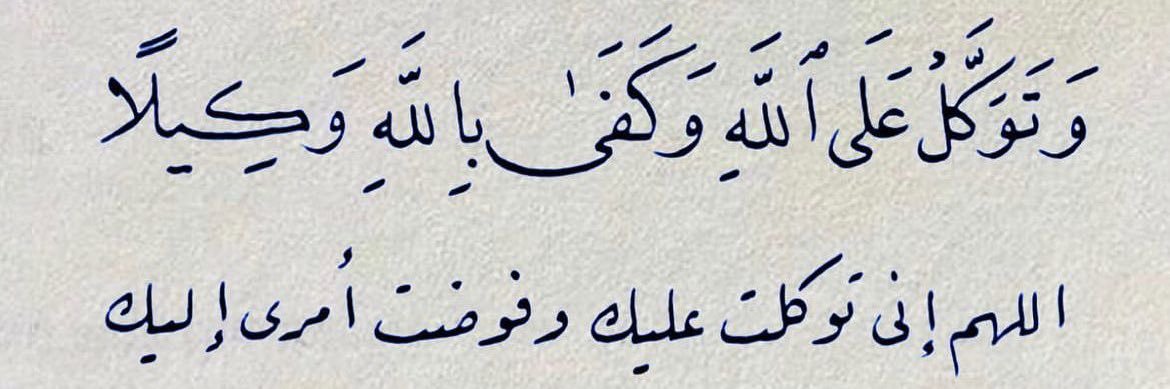 وَتَوَكَّلْ عَلَى ٱللَّهِ وَكَفَىٰ بِاللَّهِ وَكِيلًا
اللهم إنى توكلت عليك وفوضت أمرى إليك